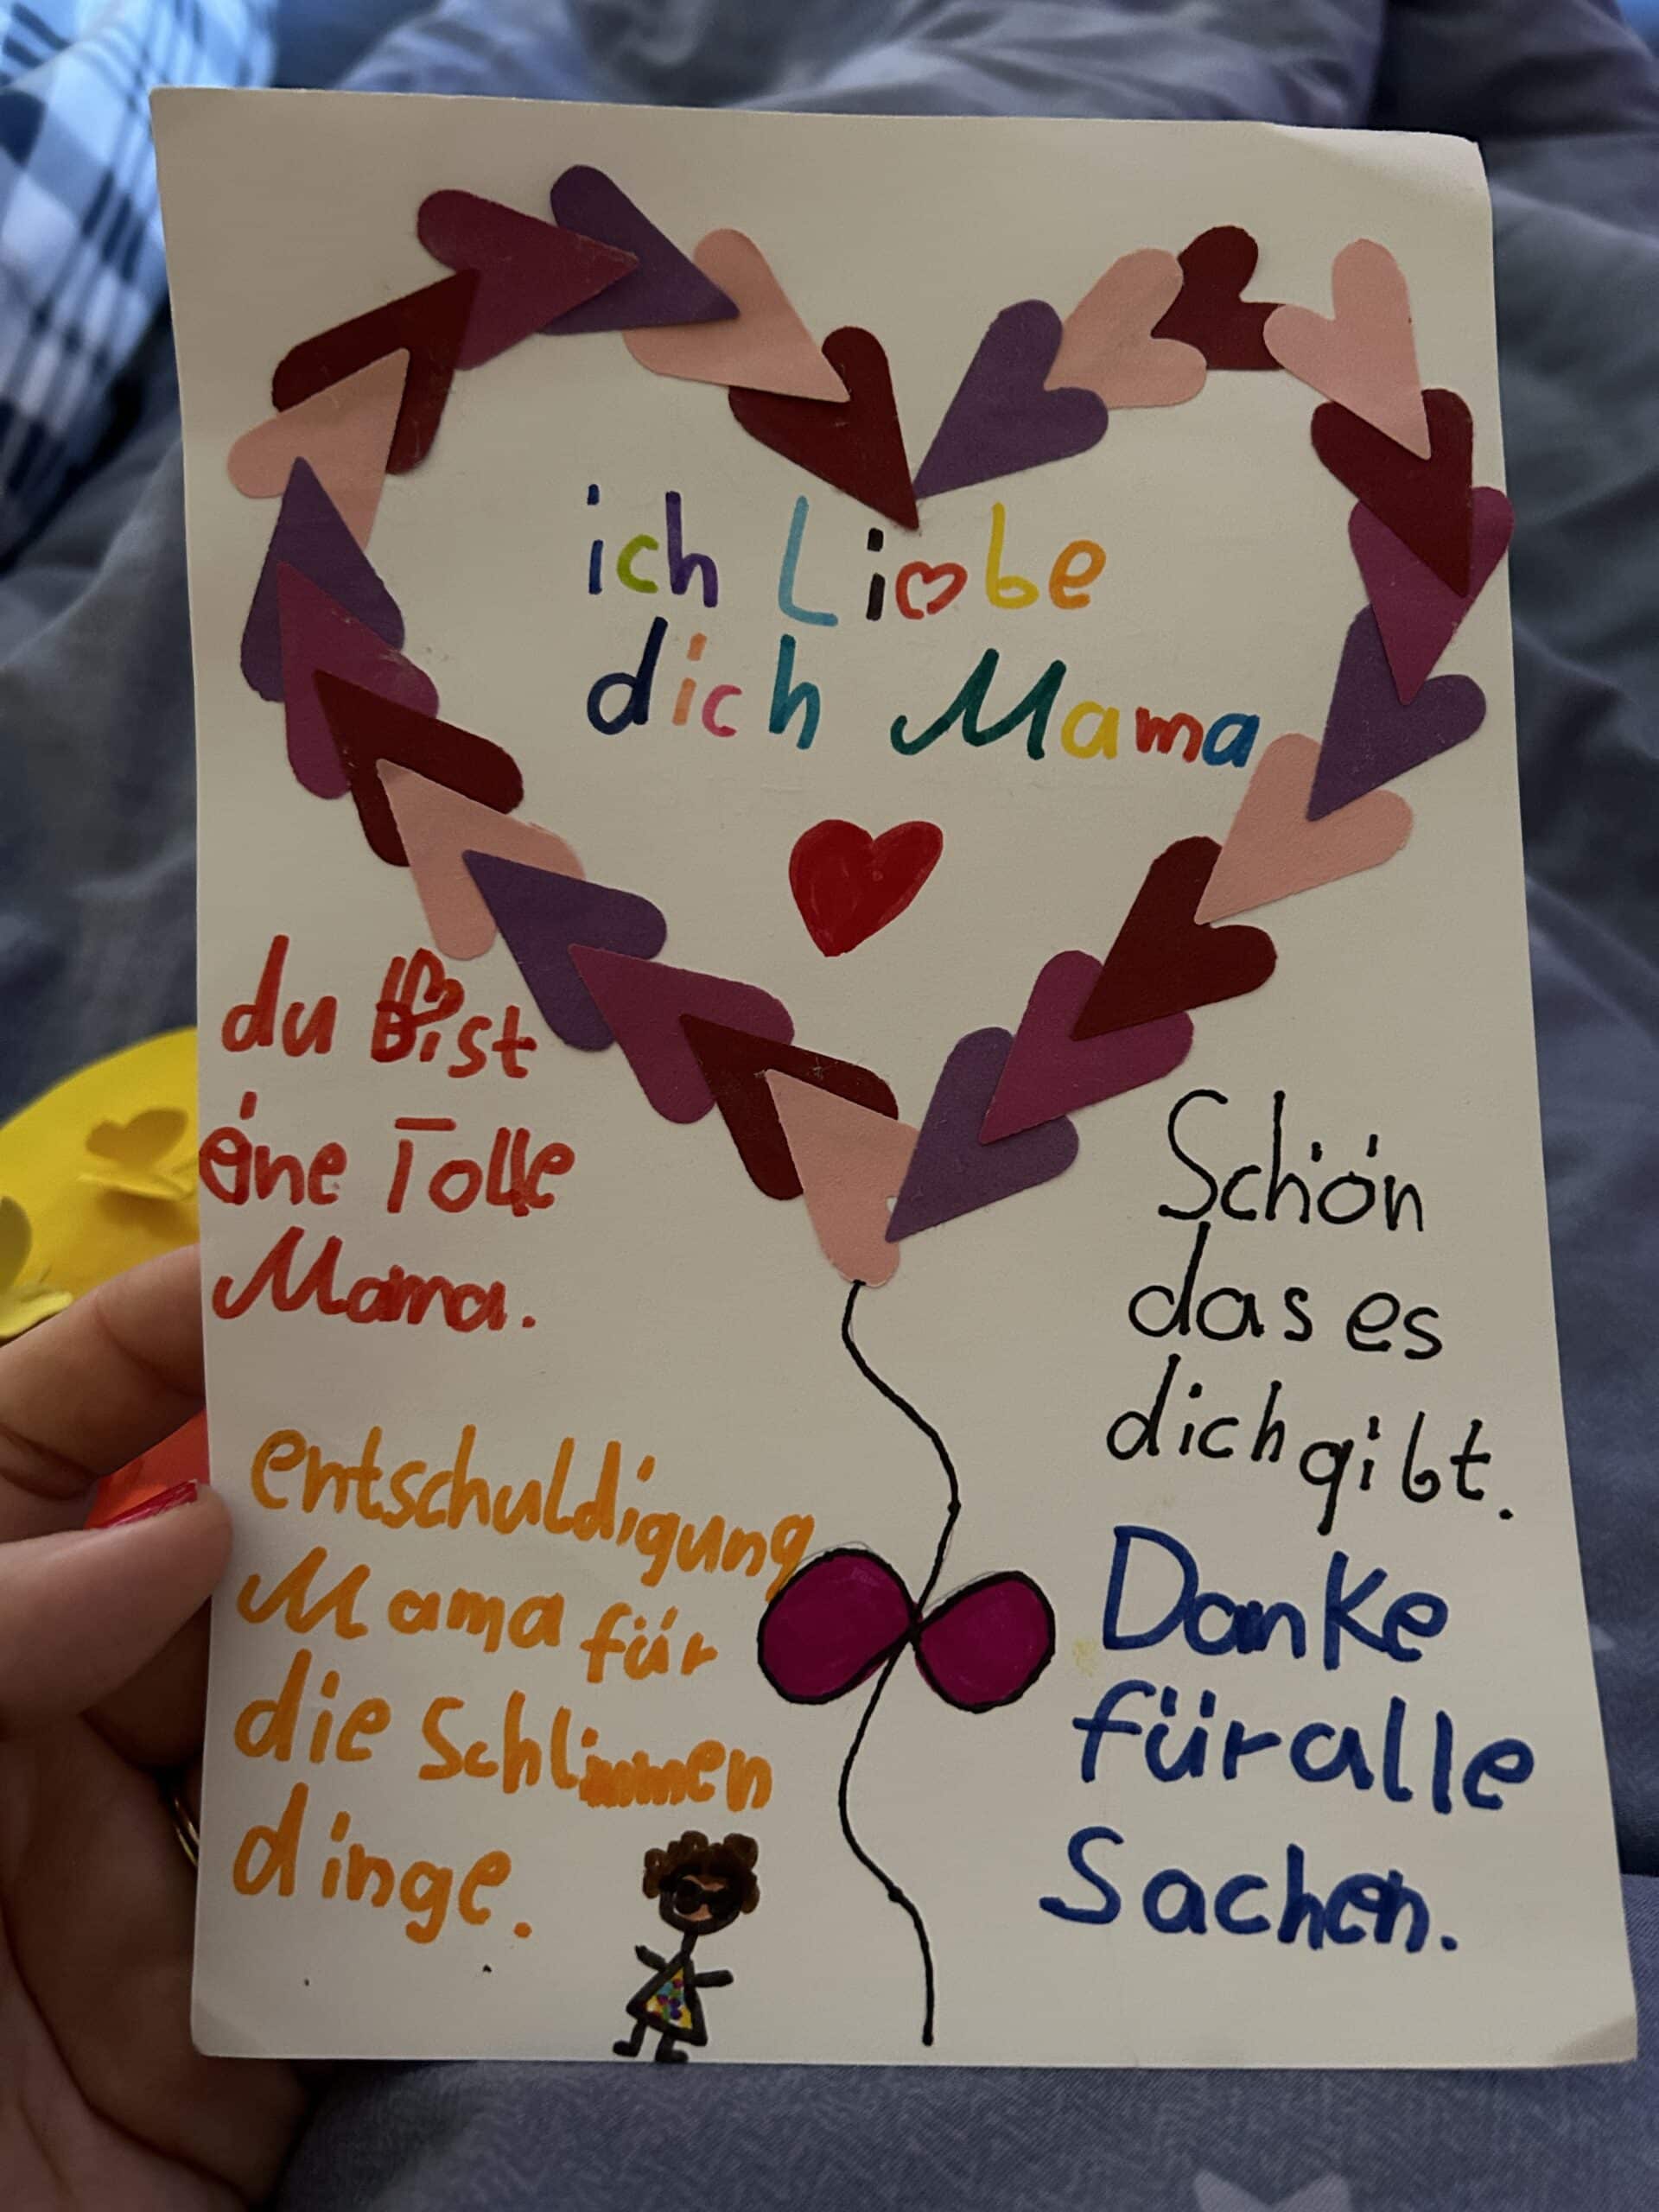 ich Liebe
dich Mama
du Bist
eine Tolle
Mama.
Schön
das es
dich gibt.
entschuldigung
Mama für
die Schlimmen
dinge.
Danke
für alle
Sachen.